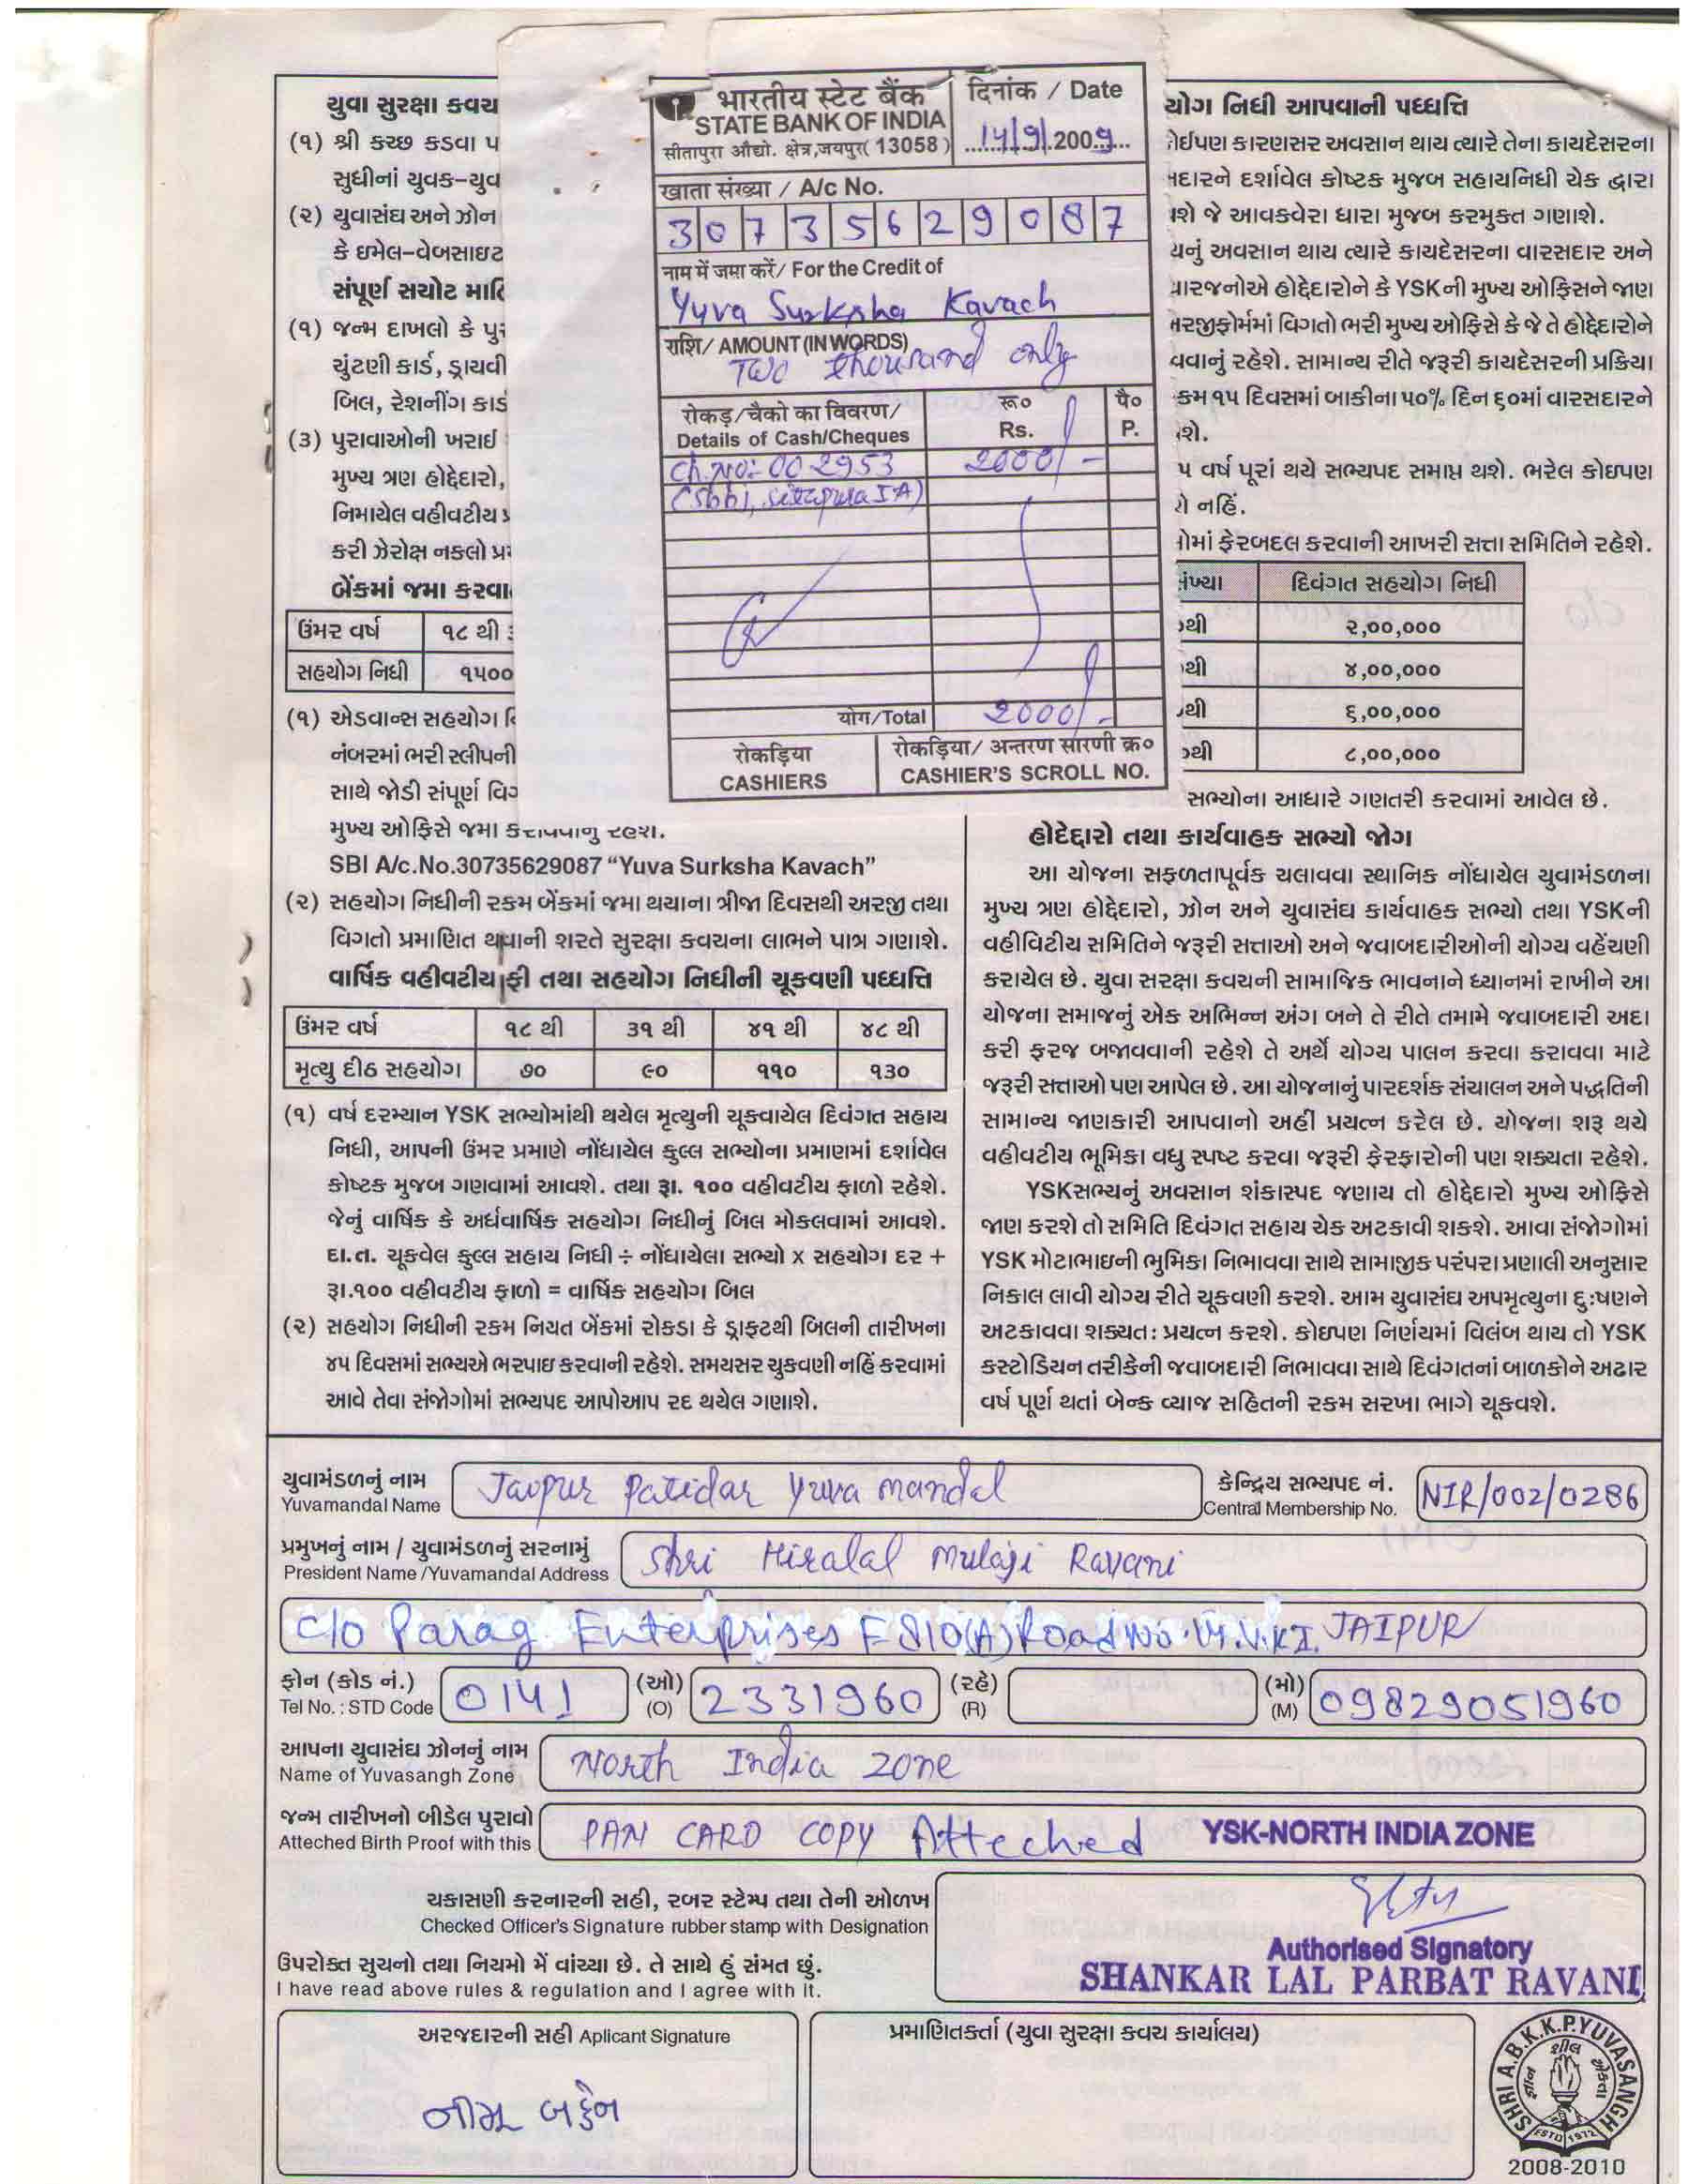 યુવા સુરક્ષા કવચ
(૧) શ્રી કચ્છ કડવા પ
સુધીનાં યુવક-યુવ
(૨) યુવાસંઘ અને ઝોન
કે ઇમેલ-વેબસાઇટ
સંપૂર્ણ સચોટ માહિ
(૧) જન્મ દાખલો કે પુર
ચુંટણી કાર્ડ, ડ્રાયવી
બિલ, રેશનીંગ કાર્ડ
(૩) પુરાવાઓની ખરાઇ
મુખ્ય ત્રણ હોદ્દેદારો,
નિમાયેલ વહીવટીય
કરી ઝેરોક્ષ નકલો પ્ર
બેંકમાં જમા કરવા
ઉંમર વર્ષ ૧૮ થી
સહયોગ નિધી ૧૫૦૦
(૧) એડવાન્સ સહયોગ
નંબરમાં ભરી સ્લીપની
સાથે જોડી સંપૂર્ણ વિગ
મુખ્ય ઓફિસે જમા કરાવવાનુ રહેશે.
SBI A/c.No.30735629087 “Yuva Surksha Kavach”
(૨) સહયોગ નિધીની રકમ બેંકમાં જમા થયાના ત્રીજા દિવસથી અરજી તથા
વિગતો પ્રમાણિત થવાની શરતે સુરક્ષા કવચના લાભને પાત્ર ગણાશે.
વાર્ષિક વહીવટીય ફી તથા સહયોગ નિધીની ચૂકવણી પધ્ધતિ
ઉંમર વર્ષ ૧૮ થી ૩૧ થી ૪૧ થી ૪૮ થી
મૃત્યુ દીઠ સહયોગ ૭૦ ૯૦ ૧૧૦ ૧૩૦
(૧) વર્ષ દરમ્યાન YSK સભ્યોમાંથી થયેલ મૃત્યુની ચૂકવાયેલ દિવંગત સહાય
નિધી, આપની ઉંમર પ્રમાણે નોંધાયેલ કુલ્લ સભ્યોના પ્રમાણમાં દર્શાવેલ
કોષ્ટક મુજબ ગણવામાં આવશે. તથા રૂા. ૧૦૦ વહીવટીય ફાળો રહેશે.
જેનું વાર્ષિક કે અર્ધવાર્ષિક સહયોગ નિધીનું બિલ મોકલવામાં આવશે.
દા.ત. ચૂકવેલ કુલ્લ સહાય નિધી ÷ નોંધાયેલા સભ્યો x સહયોગ દર +
રૂા.૧૦૦ વહીવટીય ફાળો = વાર્ષિક સહયોગ બિલ
(૨) સહયોગ નિધીની રકમ નિયત બેંકમાં રોકડા કે ડ્રાફટથી બિલની તારીખના
૪૫ દિવસમાં સભ્યએ ભરપાઇ કરવાની રહેશે. સમયસર ચુકવણી નહિં કરવામાં
આવે તેવા સંજોગોમાં સભ્યપદ આપોઆપ રદ થયેલ ગણાશે.
भारतीय स्टेट बैंक
STATE BANK OF INDIA
सीतापुरा औद्यो. क्षेत्र,जयपुर( 13058 )
दिनांक / Date
14/9/.2009
खाता संख्या / A/c No.
30735629087
नाम में जमा करें/ For the Credit of
Yuva Surksha Kavach
राशि/ AMOUNT (IN WORDS)
Two thousand only
रोकड़/चैको का विवरण/ रू० पै०
Details of Cash/Cheques Rs. P.
Ch.No:- 002953 2000/-
(Sbbj, Sitapura IA)
योग/Total 2000/-
रोकड़िया रोकड़िया/ अन्तरण सारणी क्र०
CASHIERS CASHIER'S SCROLL NO.
યોગ નિધી આપવાની પધ્ધતિ
કોઈપણ કારણસર અવસાન થાય ત્યારે તેના કાયદેસરના
દારને દર્શાવેલ કોષ્ટક મુજબ સહાયનિધી ચેક દ્વારા
શે જે આવકવેરા ધારા મુજબ કરમુક્ત ગણાશે.
યનું અવસાન થાય ત્યારે કાયદેસરના વારસદાર અને
ારજનોએ હોદ્દેદારોને કે YSKની મુખ્ય ઓફિસને જાણ
રજીફોર્મમાં વિગતો ભરી મુખ્ય ઓફિસે કે જે તે હોદ્દેદારોને
વવાનું રહેશે. સામાન્ય રીતે જરૂરી કાયદેસરની પ્રક્રિયા
કમ ૧૫ દિવસમાં બાકીના ૫૦% દિન ૬૦માં વારસદારને
શે.
૫ વર્ષ પૂરાં થયે સભ્યપદ સમાપ્ત થશે. ભરેલ કોઇપણ
નહિં.
ોમાં ફેરબદલ કરવાની આખરી સત્તા સમિતિને રહેશે.
ંખ્યા દિવંગત સહયોગ નિધી
થી ૨,૦૦,૦૦૦
થી ૪,૦૦,૦૦૦
થી ૬,૦૦,૦૦૦
થી ૮,૦૦,૦૦૦
સભ્યોના આધારે ગણતરી કરવામાં આવેલ છે.
હોદેદ્દારો તથા કાર્યવાહક સભ્યો જોગ
આ યોજના સફળતાપૂર્વક ચલાવવા સ્થાનિક નોંધાયેલ યુવામંડળના
મુખ્ય ત્રણ હોદ્દેદારો, ઝોન અને યુવાસંઘ કાર્યવાહક સભ્યો તથા YSKની
વહીવિટીય સમિતિને જરૂરી સત્તાઓ અને જવાબદારીઓની યોગ્ય વહેંચણી
કરાયેલ છે. યુવા સરક્ષા કવચની સામાજિક ભાવનાને ધ્યાનમાં રાખીને આ
યોજના સમાજનું એક અભિન્ન અંગ બને તે રીતે તમામે જવાબદારી અદા
કરી ફરજ બજાવવાની રહેશે તે અર્થે યોગ્ય પાલન કરવા કરાવવા માટે
જરૂરી સત્તાઓ પણ આપેલ છે. આ યોજનાનું પારદર્શક સંચાલન અને પદ્ધતિની
સામાન્ય જાણકારી આપવાનો અહીં પ્રયત્ન કરેલ છે. યોજના શરૂ થયે
વહીવટીય ભૂમિકા વધુ સ્પષ્ટ કરવા જરૂરી ફેરફારોની પણ શક્યતા રહેશે.
YSKસભ્યનું અવસાન શંકાસ્પદ જણાય તો હોદ્દેદારો મુખ્ય ઓફિસે
જાણ કરશે તો સમિતિ દિવંગત સહાય ચેક અટકાવી શકશે. આવા સંજોગોમાં
YSK મોટાભાઇની ભુમિકા નિભાવવા સાથે સામાજીક પરંપરા પ્રણાલી અનુસાર
નિકાલ લાવી યોગ્ય રીતે ચૂકવણી કરશે. આમ યુવાસંઘ અપમૃત્યુના દુઃષણને
અટકાવવા શક્યતઃ પ્રયત્ન કરશે. કોઇપણ નિર્ણયમાં વિલંબ થાય તો YSK
કસ્ટોડિયન તરીકેની જવાબદારી નિભાવવા સાથે દિવંગતનાં બાળકોને અઢાર
વર્ષ પૂર્ણ થતાં બેન્ક વ્યાજ સહિતની રકમ સરખા ભાગે ચૂકવશે.
યુવામંડળનું નામ
Yuvamandal Name Jaipur Patidar Yuva mandal
કેન્દ્રિય સભ્યપદ નં.
Central Membership No. NIR/002/0286
પ્રમુખનું નામ / યુવામંડળનું સરનામું
President Name /Yuvamandal Address Shri Hiralal Mulaji Ravani
C/o Parag Enterprises F 810(A) Road No. V.K.I. JAIPUR
ફોન (કોડ નં.) (ઓ) (રહે) (મો)
Tel No. : STD Code 0141 (O) 2331960 (R) (M) 09829051960
આપના યુવાસંઘ ઝોનનું નામ
Name of Yuvasangh Zone North India Zone
જન્મ તારીખનો બીડેલ પુરાવો
Atteched Birth Proof with this PAN CARD COPY Atteched YSK-NORTH INDIA ZONE
ચકાસણી કરનારની સહી, રબર સ્ટેમ્પ તથા તેની ઓળખ
Checked Officer's Signature rubber stamp with Designation
Authorised Signatory
SHANKAR LAL PARBAT RAVANI
ઉપરોક્ત સુચનો તથા નિયમો મેં વાંચ્યા છે. તે સાથે હું સંમત છું.
I have read above rules & regulation and I agree with it.
અરજદારની સહી Aplicant Signature
નીમૂ બહેન
પ્રમાણિતકર્તા (યુવા સુરક્ષા કવચ કાર્યાલય)
SHRI A.B.K.K.P.YUVASANGH
શીલ
જ્ઞાન
એકતા
ESTD 1972
2008-2010